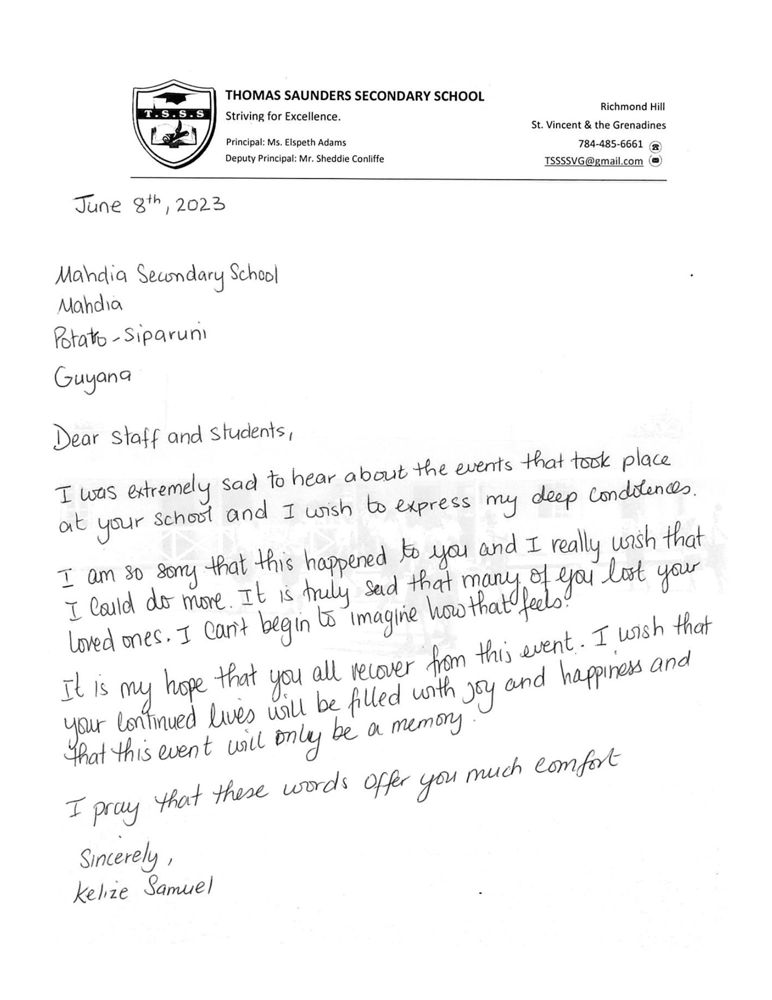 T.S.S.S
THOMAS SAUNDERS SECONDARY SCHOOL
Striving for Excellence.
Principal: Ms. Elspeth Adams
Deputy Principal: Mr. Sheddie Conliffe
Richmond Hill
St. Vincent & the Grenadines
784-485-6661
TSSSSVG@gmail.com
June 8th, 2023
Mahdia Secondary School
Mahdia
Potato-Siparuni
Guyana
Dear Staff and Students,
I was extremely sad to hear about the events that took place
at your school and I wish to express my deep condolences.
I am so sorry that this happened to you and I really wish that
I could do more. It is truly sad that many of you lost your
loved ones. I can't begin to imagine how that feels.
It is my hope that you all recover from this event. I wish that
your continued lives will be filled with joy and happiness and
that this event will only be a memory.
I pray that these words offer you much comfort
Sincerely,
Kelize Samuel